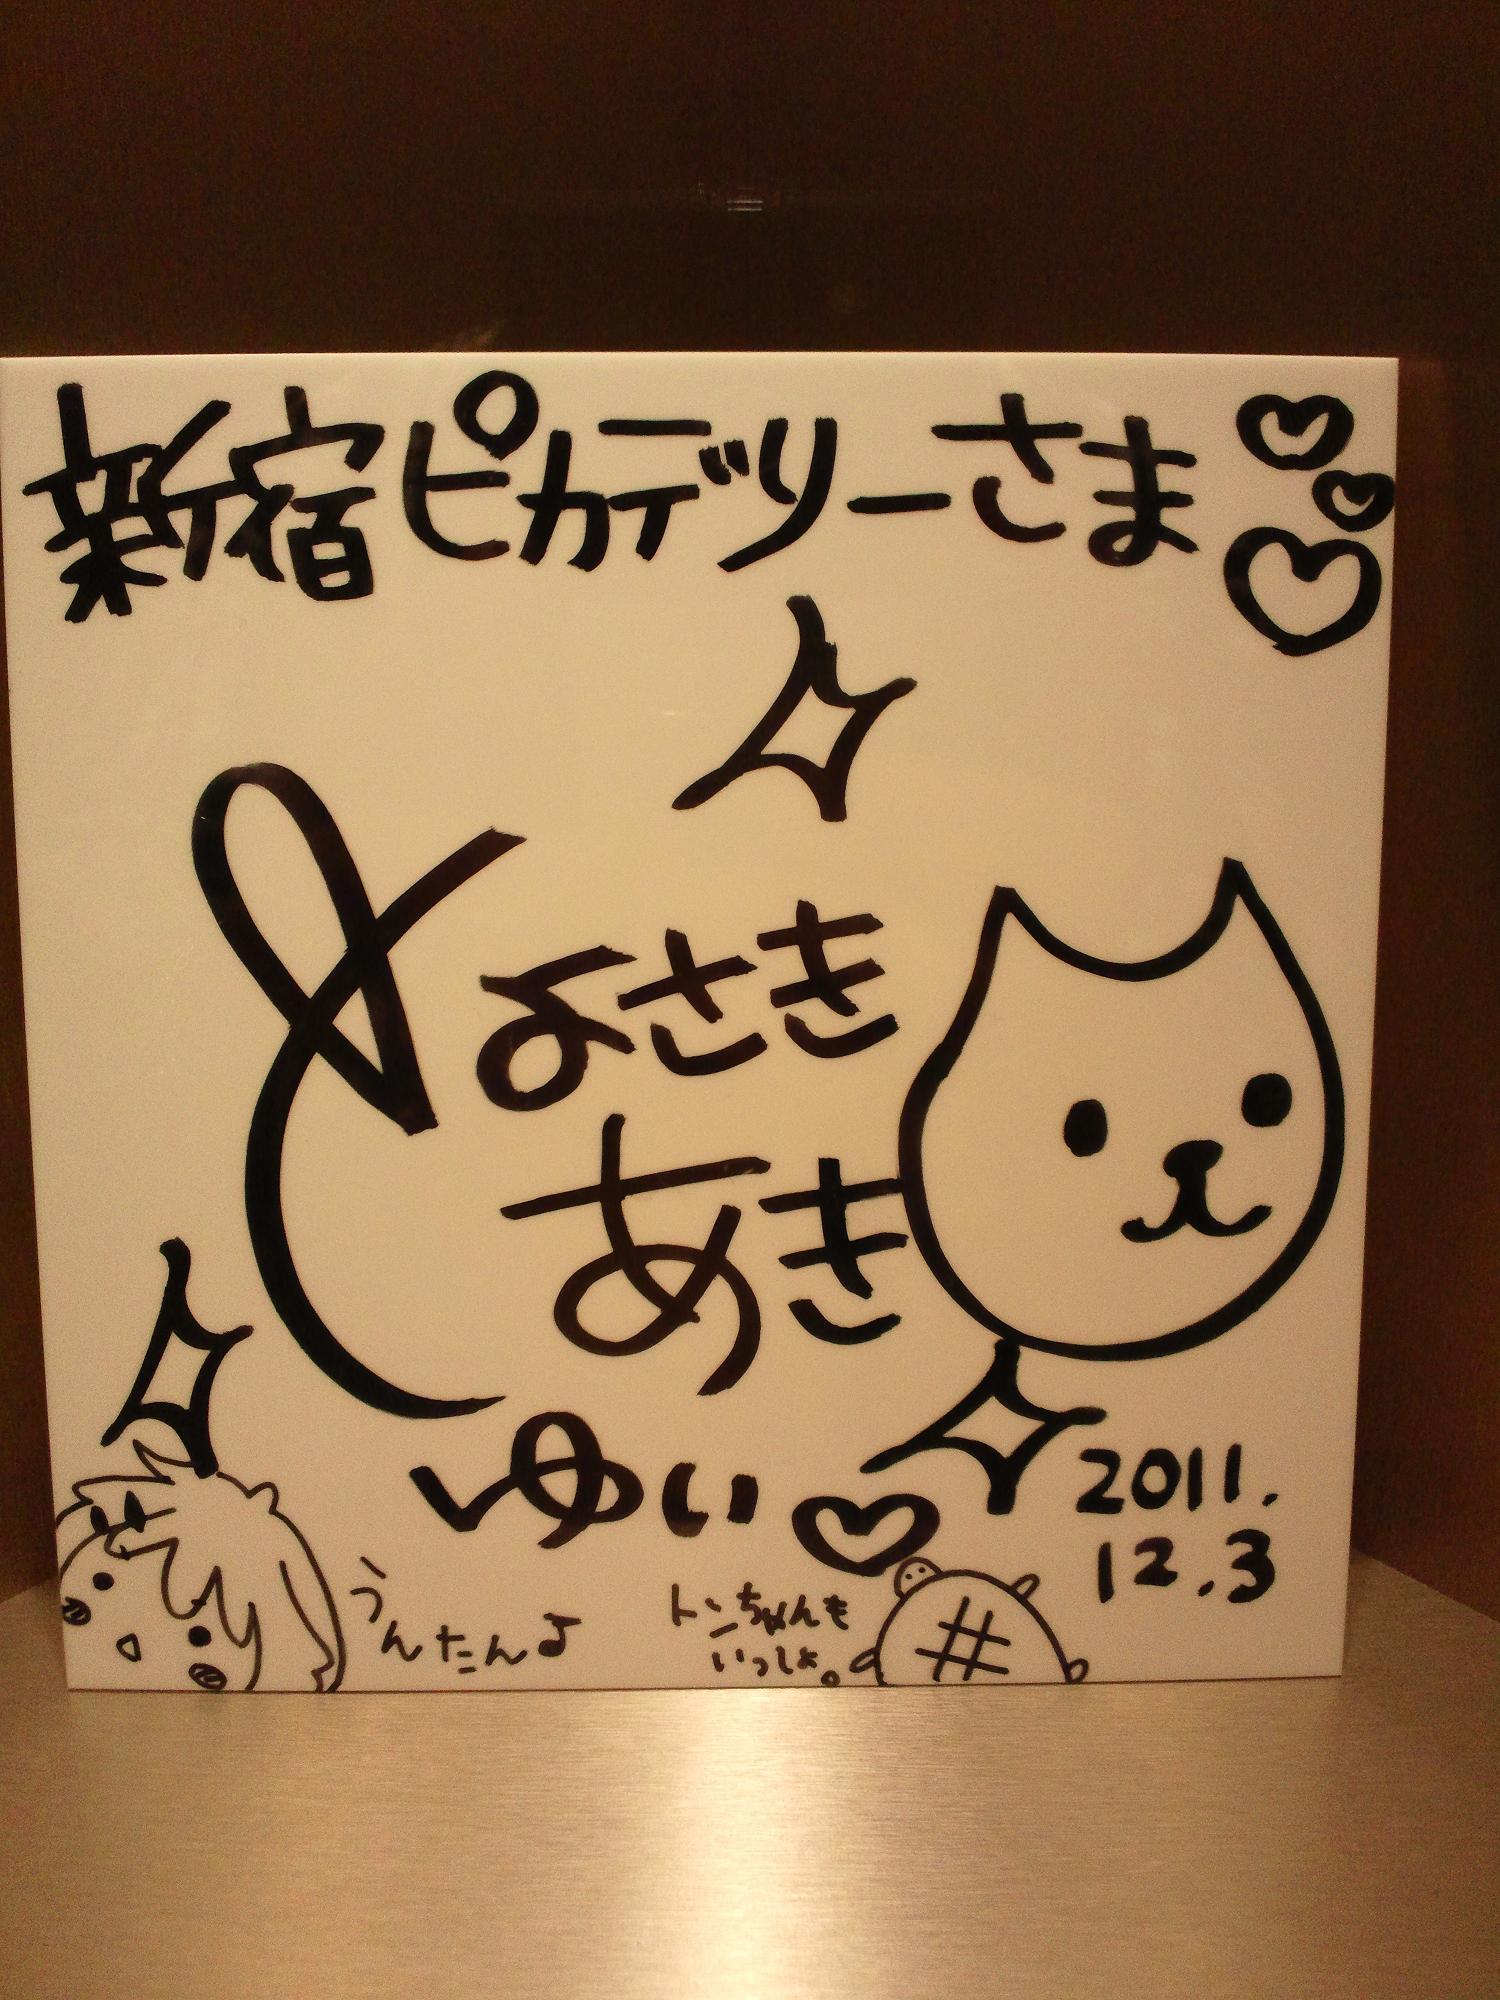 新宿ピカデリーさま
とよさき
あき
ゆい
2011.
12.3
うんたんよ
トンちゃんも
いっしょ。